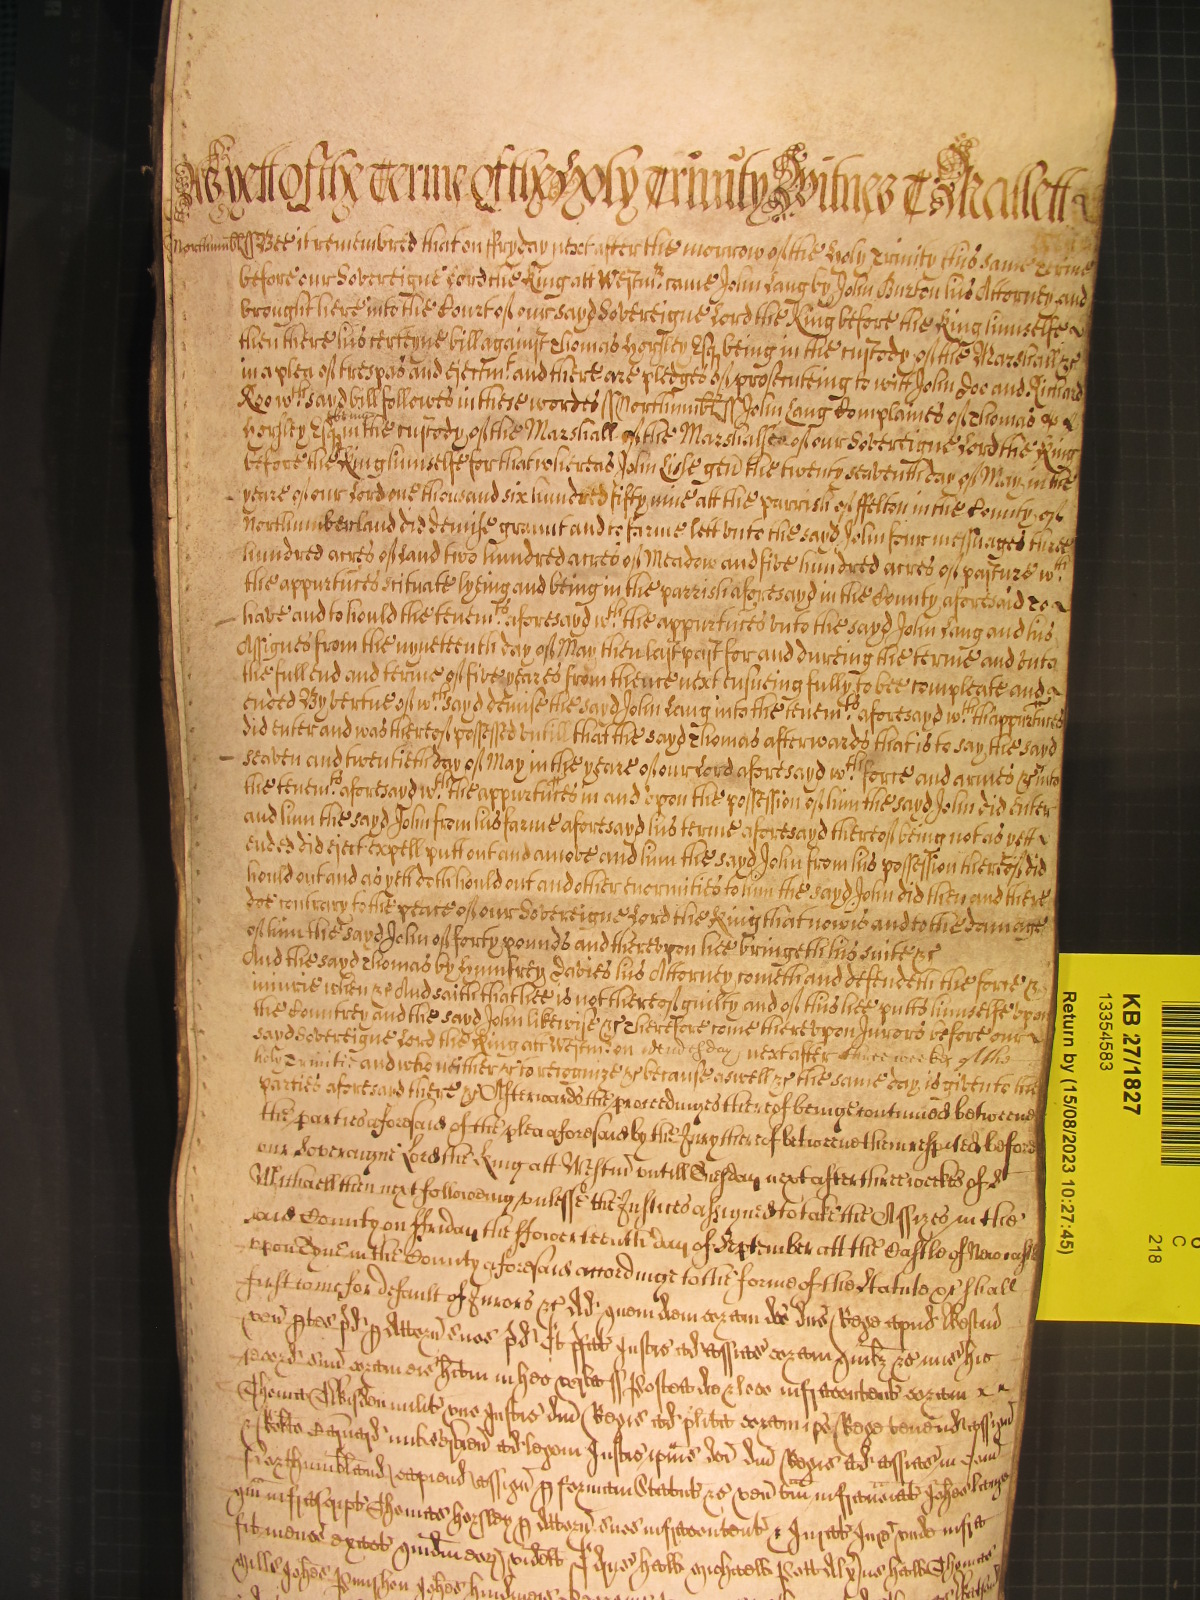 As yett of the Terme of the Holy Trinity Witnes T Mallett
Northumbr ss Bee it remembred that on ffryday next after the morrow of the Holy Trinity this same Terme
before our Sovereigne Lord the King att Westmr. came John Lang by John Burton his Attorney and
brought here into the Court of our sayd Sovereigne Lord the King before the King himselfe
then there his certeyne bill against Thomas Horsley Esqr being in the custody of the Marshall &c
in a plea of trespas and ejectmt. and there are pledges of prosecuteing to witt John Doe and Richard
Roo wch. sayd bill followes in these wordes ss Northumbr ss John Lang Complaines of Thomas
Horsley Esqr being in the custody of the Marshall of the Marshalsea of our Sovereigne Lord the King
before the King himselfe for that whereas John Lisle gen the twenty seaventh day of May in the
yeare of our Lord one thousand six hundred fifty nine att the parrish of ffelton in the County of
Northumberland did demise graunt and to farme lett unto the sayd John four messuages three
hundred acres of Land two hundred acres of Meadow and five hundred acres of pasture wth.
the appurtnces scituate lyeing and being in the parrish aforesayd in the County aforesaid To
have and to hould the tenemts. aforesayd wth. the appurtnces unto the sayd John Lang and his
Assignes from the nyneteenth day of May then last past for and dureing the terme and unto
the full end and terme of five yeares from thence next ensueing fully to bee compleate and
ended By vertue of wch. sayd demise the sayd John Lang into the tenemts. aforesayd wth. thappurtnces
did enter and was thereof possessed untill that the sayd Thomas afterwards that is to say the sayd
seaven and twentieth day of May in the yeare of our Lord aforesayd wth. force and armes &c into
the tenemts. aforesayd wth. the appurtnces in and upon the possession of him the sayd John did enter
and him the sayd John from his farme aforesayd his terme aforesayd thereof being not as yett
ended did eject expell putt out and amove and him the sayd John from his possession thereof did
hould out and as yett doth hould out and other enormities to him the sayd John did then and there
doe contrary to the peace of our Sovereigne Lord the King that now is and to the damage
of him the sayd John of forty pounds and thereupon hee bringeth his suite &c
And the sayd Thomas by Humfrey Davies his Attorney cometh and defendeth the force &
injurie when &c And saith that hee is not thereof guilty and of this hee putts himselfe upon
the Countrey and the sayd John likewise &c Therefore come thereupon Jurors before our
sayd Sovereigne Lord the King att Westmr. on Wendesday next after three weekes of the
holy Trinitie and who neither &c to recognize &c because aswell &c the same day is given to the
parties aforesayd there &c Afterwards the proceedinges thereof beinge continued betweene
the parties aforesaid of the plea aforesaid by the Jury thereof betweene them respited before
our Soveraigne Lord the King att Westmr untill Tuesday next after three weekes of St
Michaell then next followeing unlesse the Justices assigned to take the Assizes in the
said County on ffriday the ffowerteenth day of September att the Castle of Newcastle
upon Tyne in the County aforesaid accordinge to the forme of the Statute &c shall
first come for default of Jurors &c Ad quem diem coram dco dno Rege apud Westm
ven ptes pd p Attorn suos pd Et pfat Justic ad assisas coram quibz &c mis hic
record suu coram eis hitum in hec verba ss Postea die et loco infracontent coram
Thoma Tirrell milit uno Justic dni Regis ad plita coram ipo Rege tenend assign
ad legem Justic ipius dni Regis ad assisas in Com
Northumbland capiend assign p formam Statut &c ven tam infranoiat Johes Lang
qm infrascript Thomas Horsley p Attorn suos infracontent Et Jurat Jure unde infra
fit menco exact quidam eorz videlt